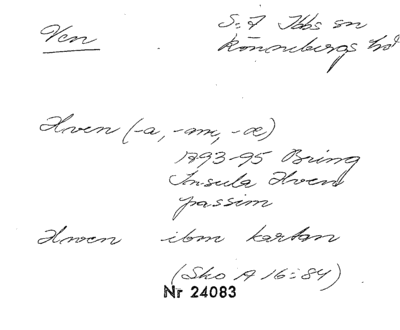 Ven
S:t Ibbs sn
Rönnebergs hd
Hven (-a, -am, -æ)
1793-95 Bring
Insula Hven
passim
Hwen ibm kartan
(Sko A 16:84)
Nr 24083